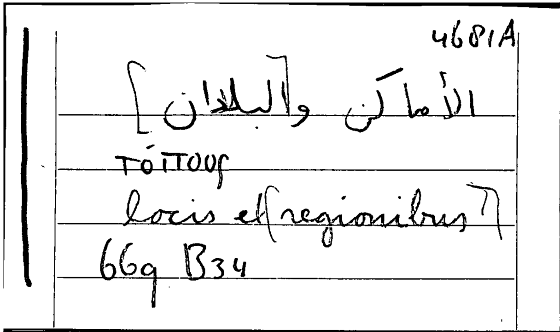 4681A
الأماكن و[البلدان]
τόπους
locis et [regionibus?]
66q B34